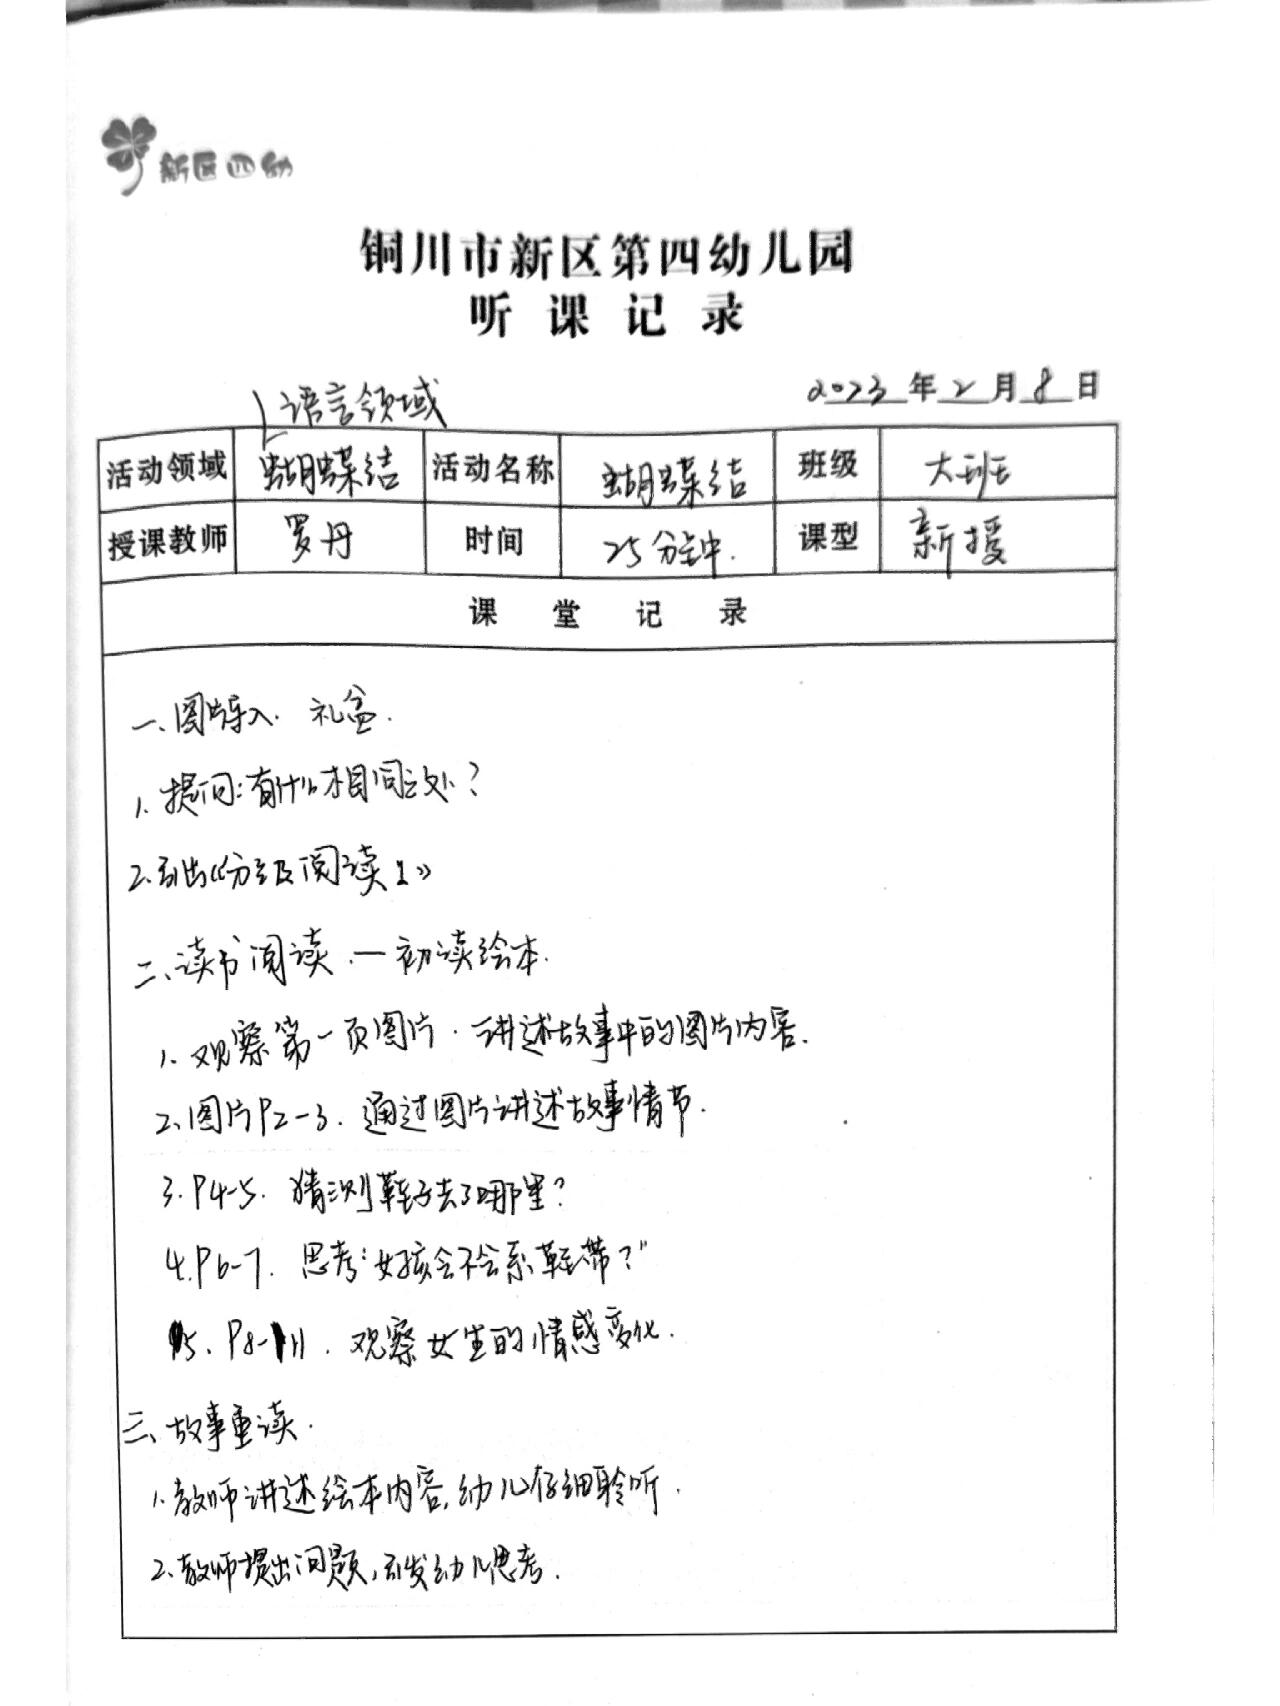 新区四幼
铜川市新区第四幼儿园
听课记录
2023年2月8日
语言领域
活动领域 蝴蝶结 活动名称 蝴蝶结 班级 大班
授课教师 罗丹 时间 25分钟. 课型 新授
课堂记录
一、图片导入. 礼盒.
1. 提问:有什么相同之处?
2.引出《分级阅读1》
二、读书阅读.—初读绘本.
1. 观察第一页图片.讲述故事中的图片内容.
2.图片P2-3. 通过图片讲述故事情节.
3.P4-5. 猜测鞋子去了哪里?
4.P6-7. 思考:女孩会不会系鞋带?"
5. P8-11. 观察女生的情感变化.
三、故事重读.
1.教师讲述绘本内容,幼儿仔细聆听.
2.教师提出问题,引发幼儿思考.